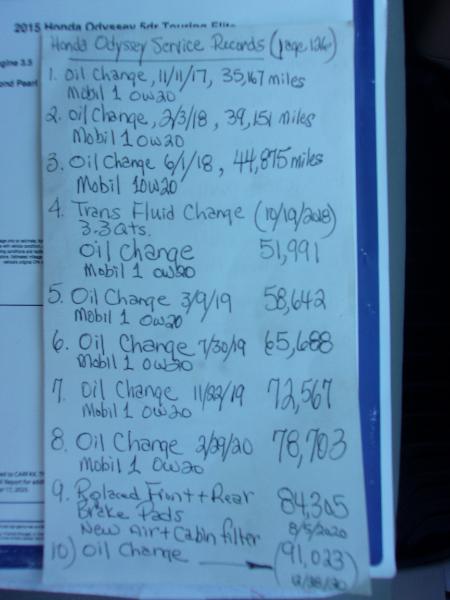 2015 Honda Odyssey 5dr Touring Elite
Honda Odyssey Service Records (page 1 of
1. Oil Change, 11/11/17, 35,167 miles
Mobil 1 0w20
2. Oil Change, 2/3/18, 39,151 miles
Mobil 1 0w20
3. Oil Change 6/1/18, 44,875 miles
Mobil 10w20
4. Trans Fluid Change (10/19/2018)
3.3 Qts.
Oil Change 51,991
Mobil 1 0w20
5. Oil Change 3/9/19 58,642
Mobil 1 0w20
6. Oil Change 7/30/19 65,688
Mobil 1 0w20
7. Oil Change 11/22/19 72,567
Mobil 1 0w20
8. Oil Change 2/29/20 78,703
Mobil 1 0w20
9. Replaced Front + Rear 84,305
Brake Pads
New Air + Cabin Filter 8/5/2020
10) Oil Change (91,023)
12/28/20